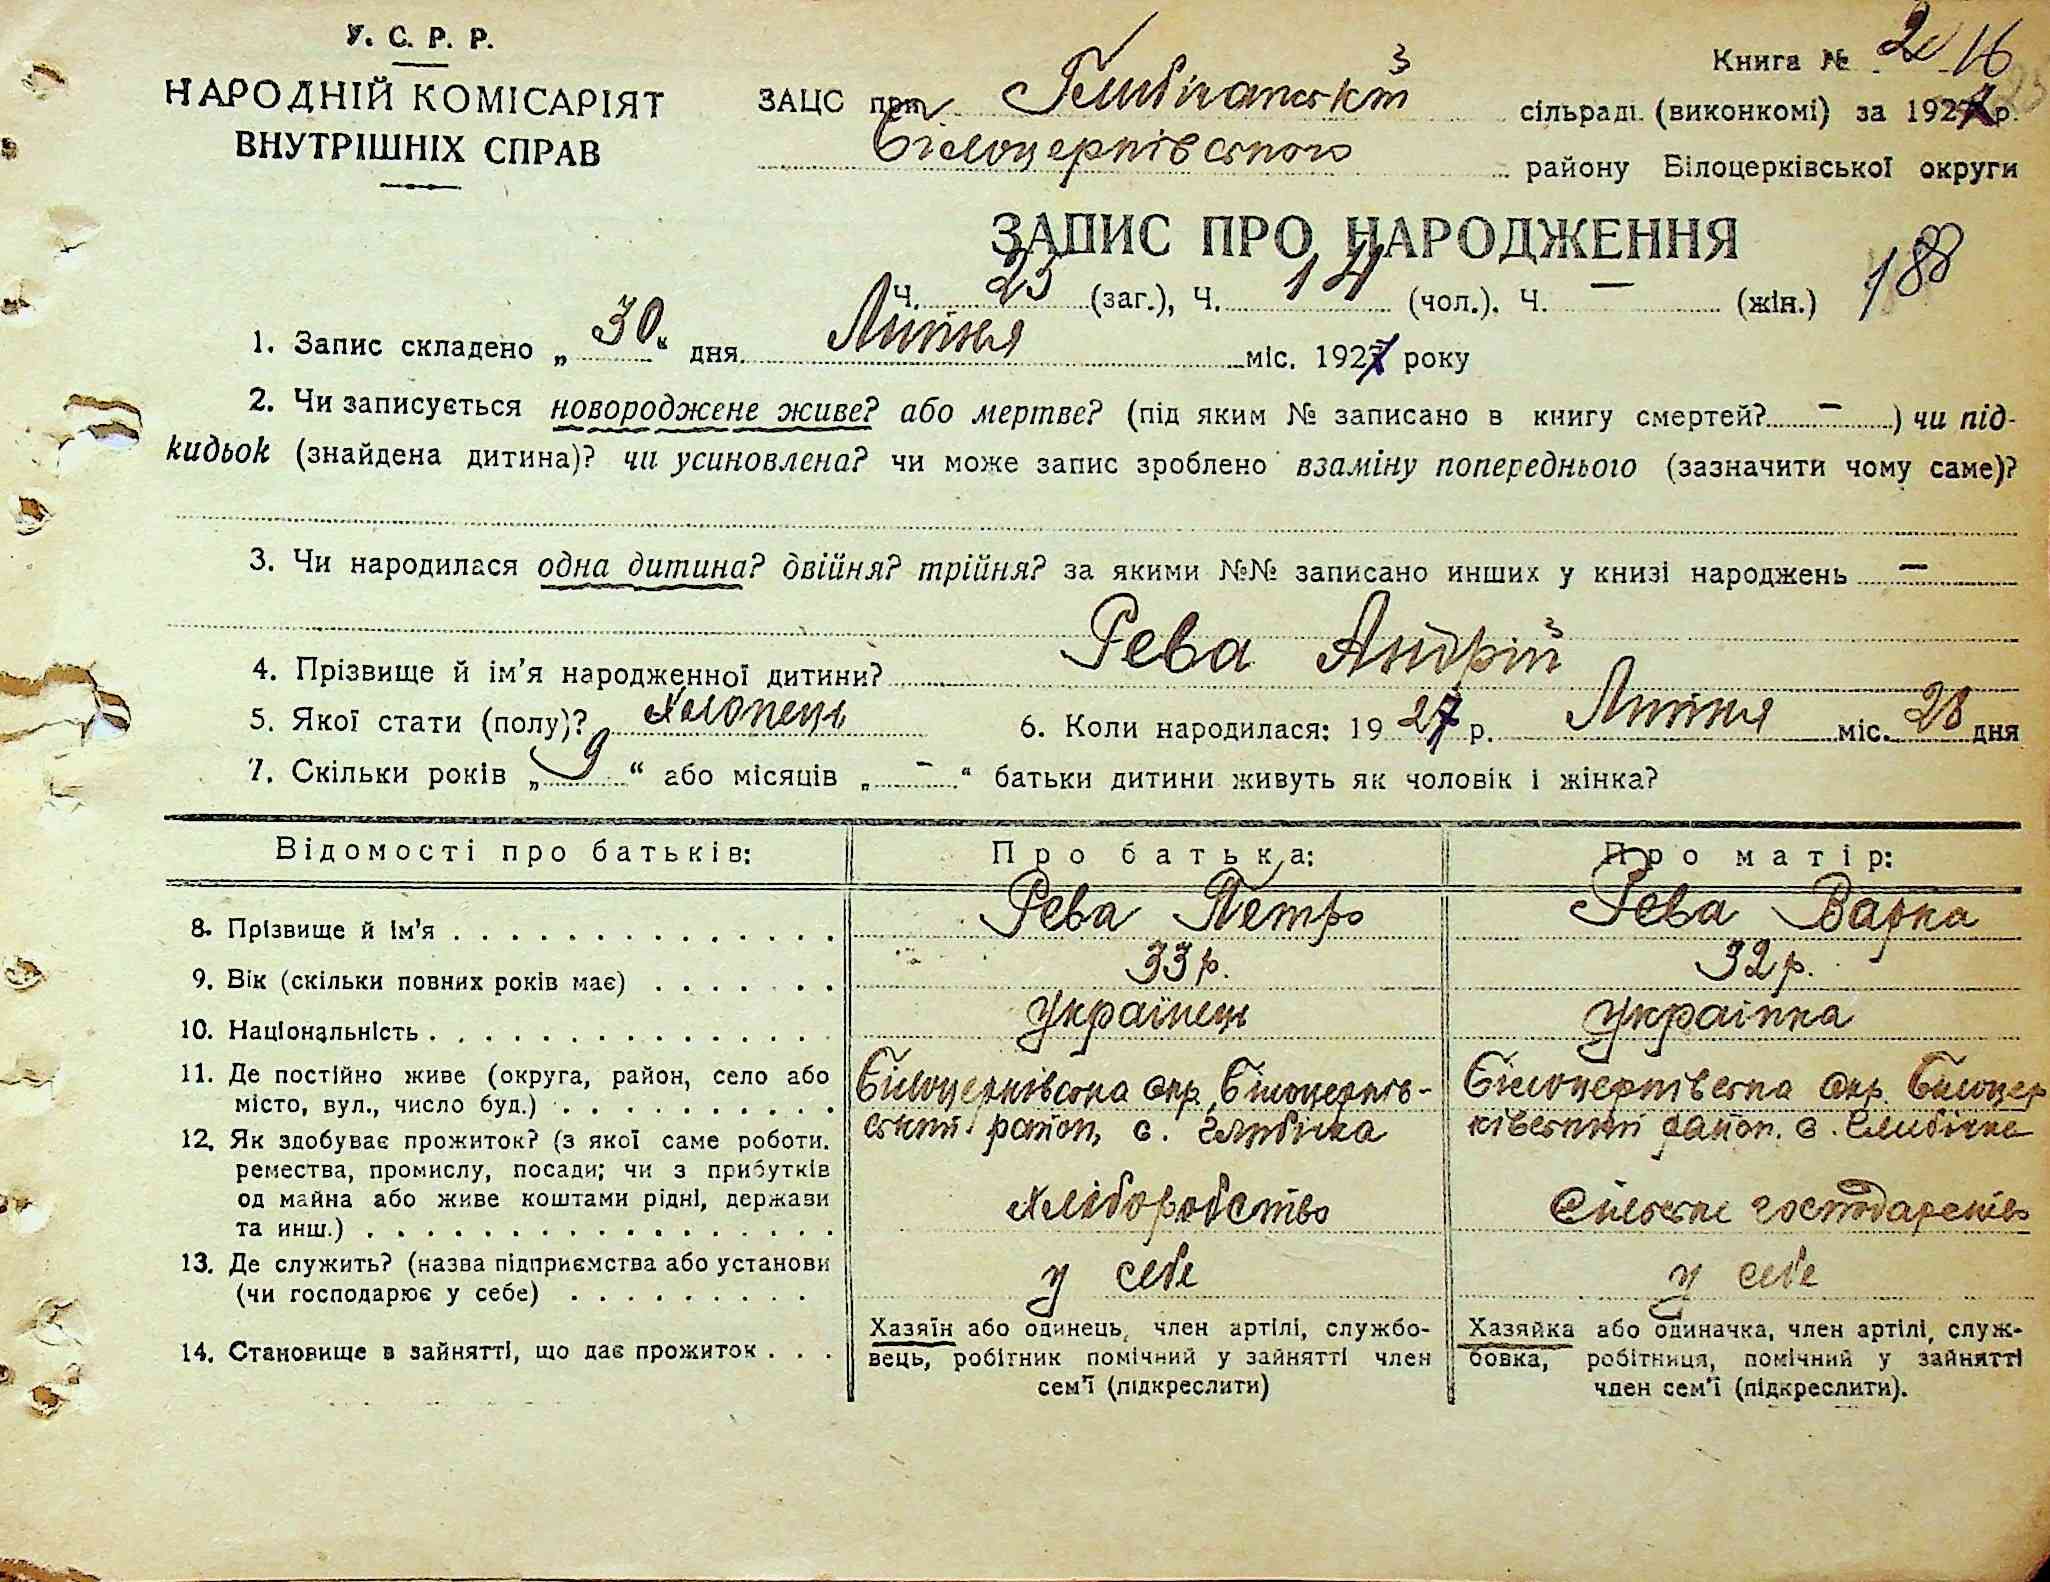 У. С. Р. Р.
НАРОДНІЙ КОМІСАРІЯТ
ВНУТРІШНІХ СПРАВ
Книга № 2 16
ЗАЦС при Глибічанській сільраді (виконкомі) за 1927 р.
Білоцерківського району Білоцерківської округи
ЗАПИС ПРО НАРОДЖЕННЯ
188
Ч. 25 (заг.), Ч. 14 (чол.). Ч. — (жін.)
1. Запис складено „ 30 “ дня Липня міс. 1927 року
2. Чи записується новороджене живе? або мертве? (під яким № записано в книгу смертей? — ) чи під-
кидьок (знайдена дитина)? чи усиновлена? чи може запис зроблено взаміну попереднього (зазначити чому саме)?
3. Чи народилася одна дитина? двійня? трійня? за якими №№ записано инших у книзі народжень —
4. Прізвище й ім'я народженної дитини? Рева Андрій
5. Якої стати (полу)? Хлопець 6. Коли народилася: 1927 р. Липня міс. 28 дня
7. Скільки років „ 9 “ або місяців „ — “ батьки дитини живуть як чоловік і жінка?
Відомості про батьків: Про батька: Про матір:
8. Прізвище й ім'я Рева Петро Рева Варка
9. Вік (скільки повних років має) 33 р. 32 р.
10. Національність Українець Українка
11. Де постійно живе (округа, район, село або
місто, вул., число буд.)
Білоцерківська окр., Білоцерків-
ський район, с. Глибічка
Білоцерківська окр. Білоцер
ківський район. с. Глибічка
12. Як здобуває прожиток? (з якої саме роботи.
ремества, промислу, посади; чи з прибутків
од майна або живе коштами рідні, держави
та инш.)
хліборобство
Сільське господарство
13. Де служить? (назва підприємства або установи
(чи господарює у себе)
у себе
у себе
14. Становище в зайнятті, що дає прожиток
Хазяїн або одинець, член артілі, службо-
вець, робітник помічний у зайнятті член
сем'ї (підкреслити)
Хазяйка або одиначка, член артілі, служ-
бовка, робітниця, помічний у зайнятті
член сем'ї (підкреслити).